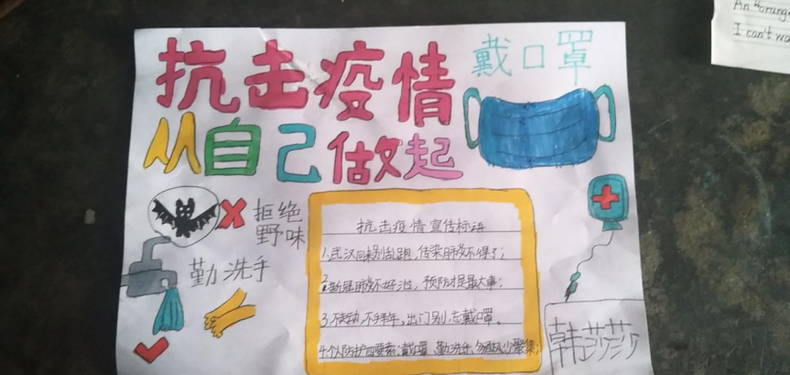 抗击疫情
戴口罩
从自己做起
拒绝
野味
勤洗手
抗击疫情宣传标语
1.武汉回来别乱跑,传染肺炎不得了;
2.新冠肺炎不好治,预防才是最大事;
3.不走动,不拜年,出门别忘戴口罩。
4.个人防护四要素:戴口罩、勤洗手、勿聚集;
韩莎莎
An orange
I can't wa